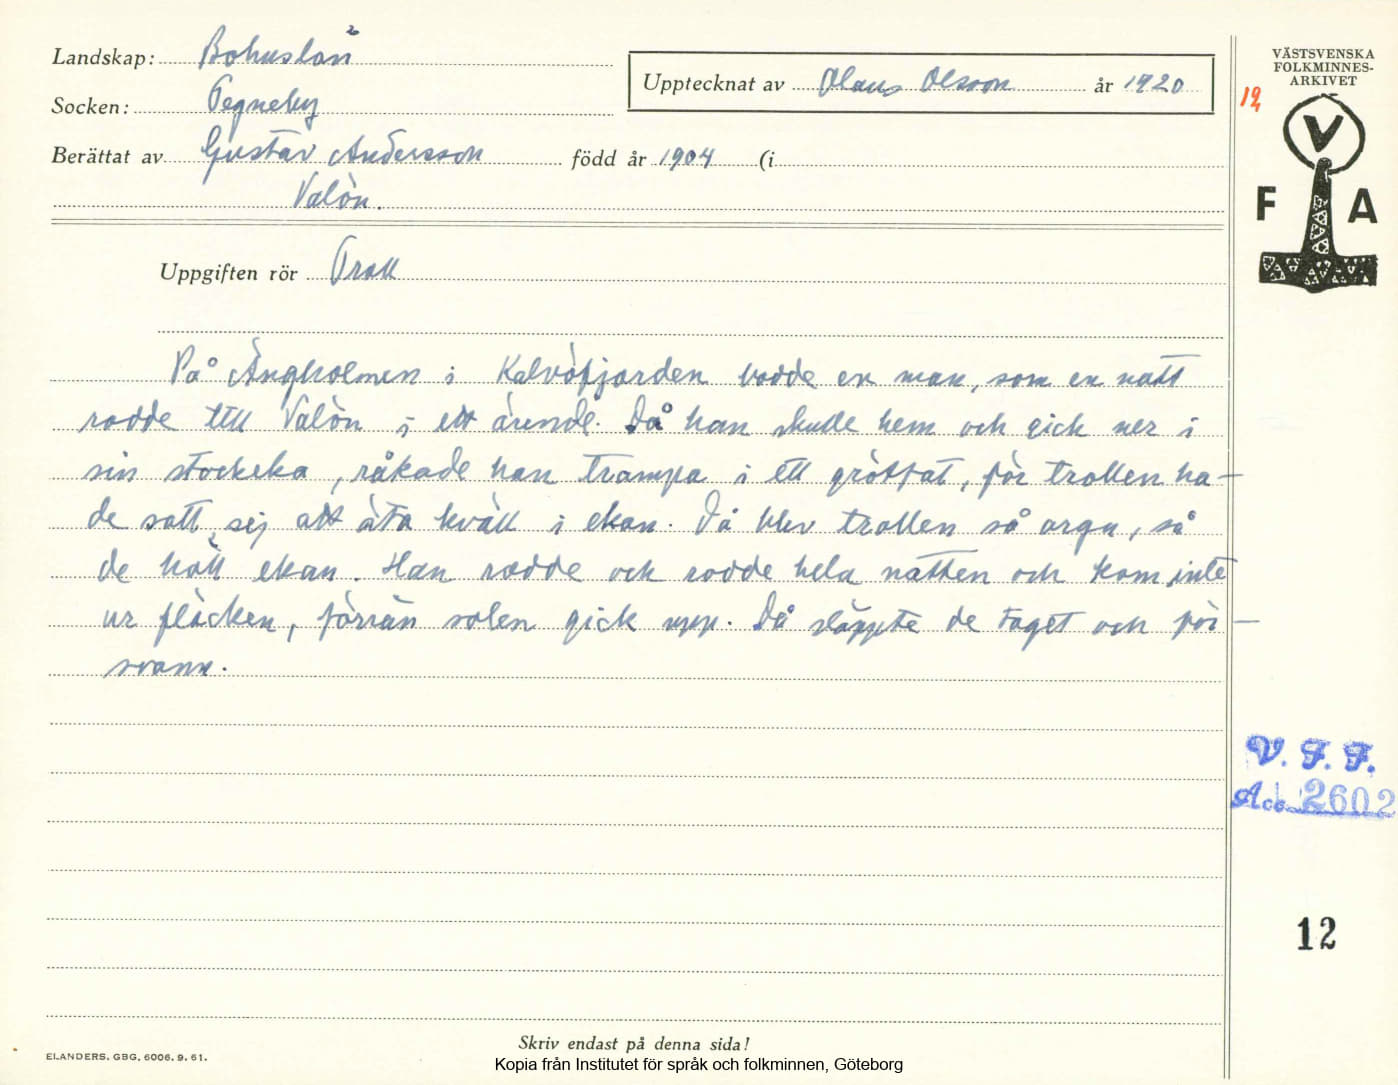 Landskap: Bohuslän
Socken: Tegneby
Berättat av Gustav Andersson född år 1904 (i
Valön.
Upptecknat av Olaus Olsson år 1920
VÄSTSVENSKA
FOLKMINNES-
ARKIVET
12
V
F A
Uppgiften rör Troll
På Ängholmen i Kalvöfjorden bodde en man, som en natt
rodde till Valön i ett ärende. Då han skulle hem och gick ner i
sin stockeka, råkade han trampa i ett grötfat, för trollen ha-
de satt sej att äta kväll i ekan. Då blev trollen så arga, så
de höll ekan. Han rodde och rodde hela natten och kom inte
ur fläcken, förrän solen gick upp. Då släppte de taget och för-
svann.
V. F. F.
Acc. 2602
12
Skriv endast på denna sida!
ELANDERS, GBG, 6006. 9. 61.
Kopia från Institutet för språk och folkminnen, Göteborg